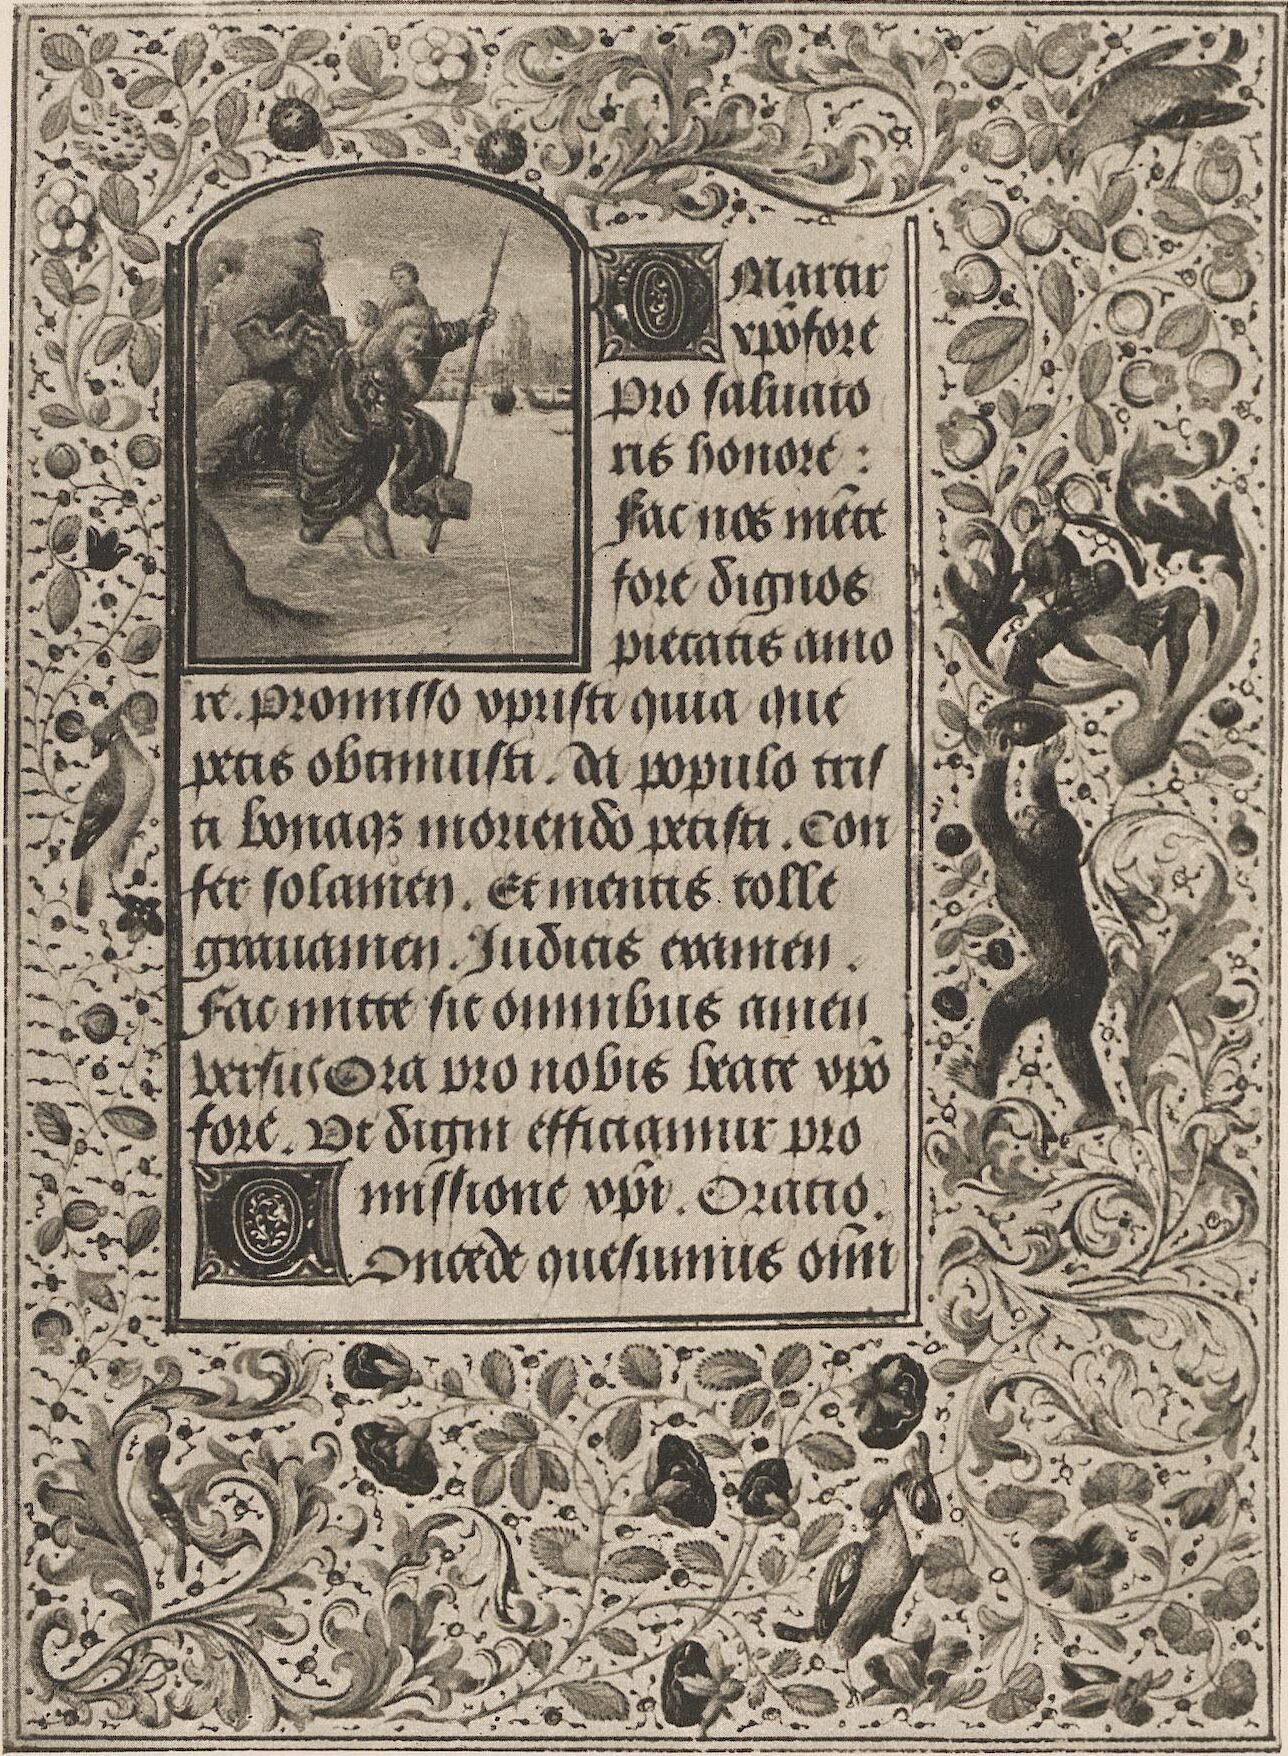 O Martir
xp̄ofore
pro saluato
ris honore :
fac nos mẽte
fore dignos
pietatis amo
re. Promisso xpristi quia que
petis obtinuisti. Da populo tris
ti bonaqꝫ moriendo petisti. Con
fer solamen. Et mentis tolle
grauamen. Iudicis examen.
fac mitte sic omnibus amen
versus Ora pro nobis beate xp̄o
fore. Vt digni efficiamur pro
missione xp̄i. Oratio.
Oncede quesumus om̄i